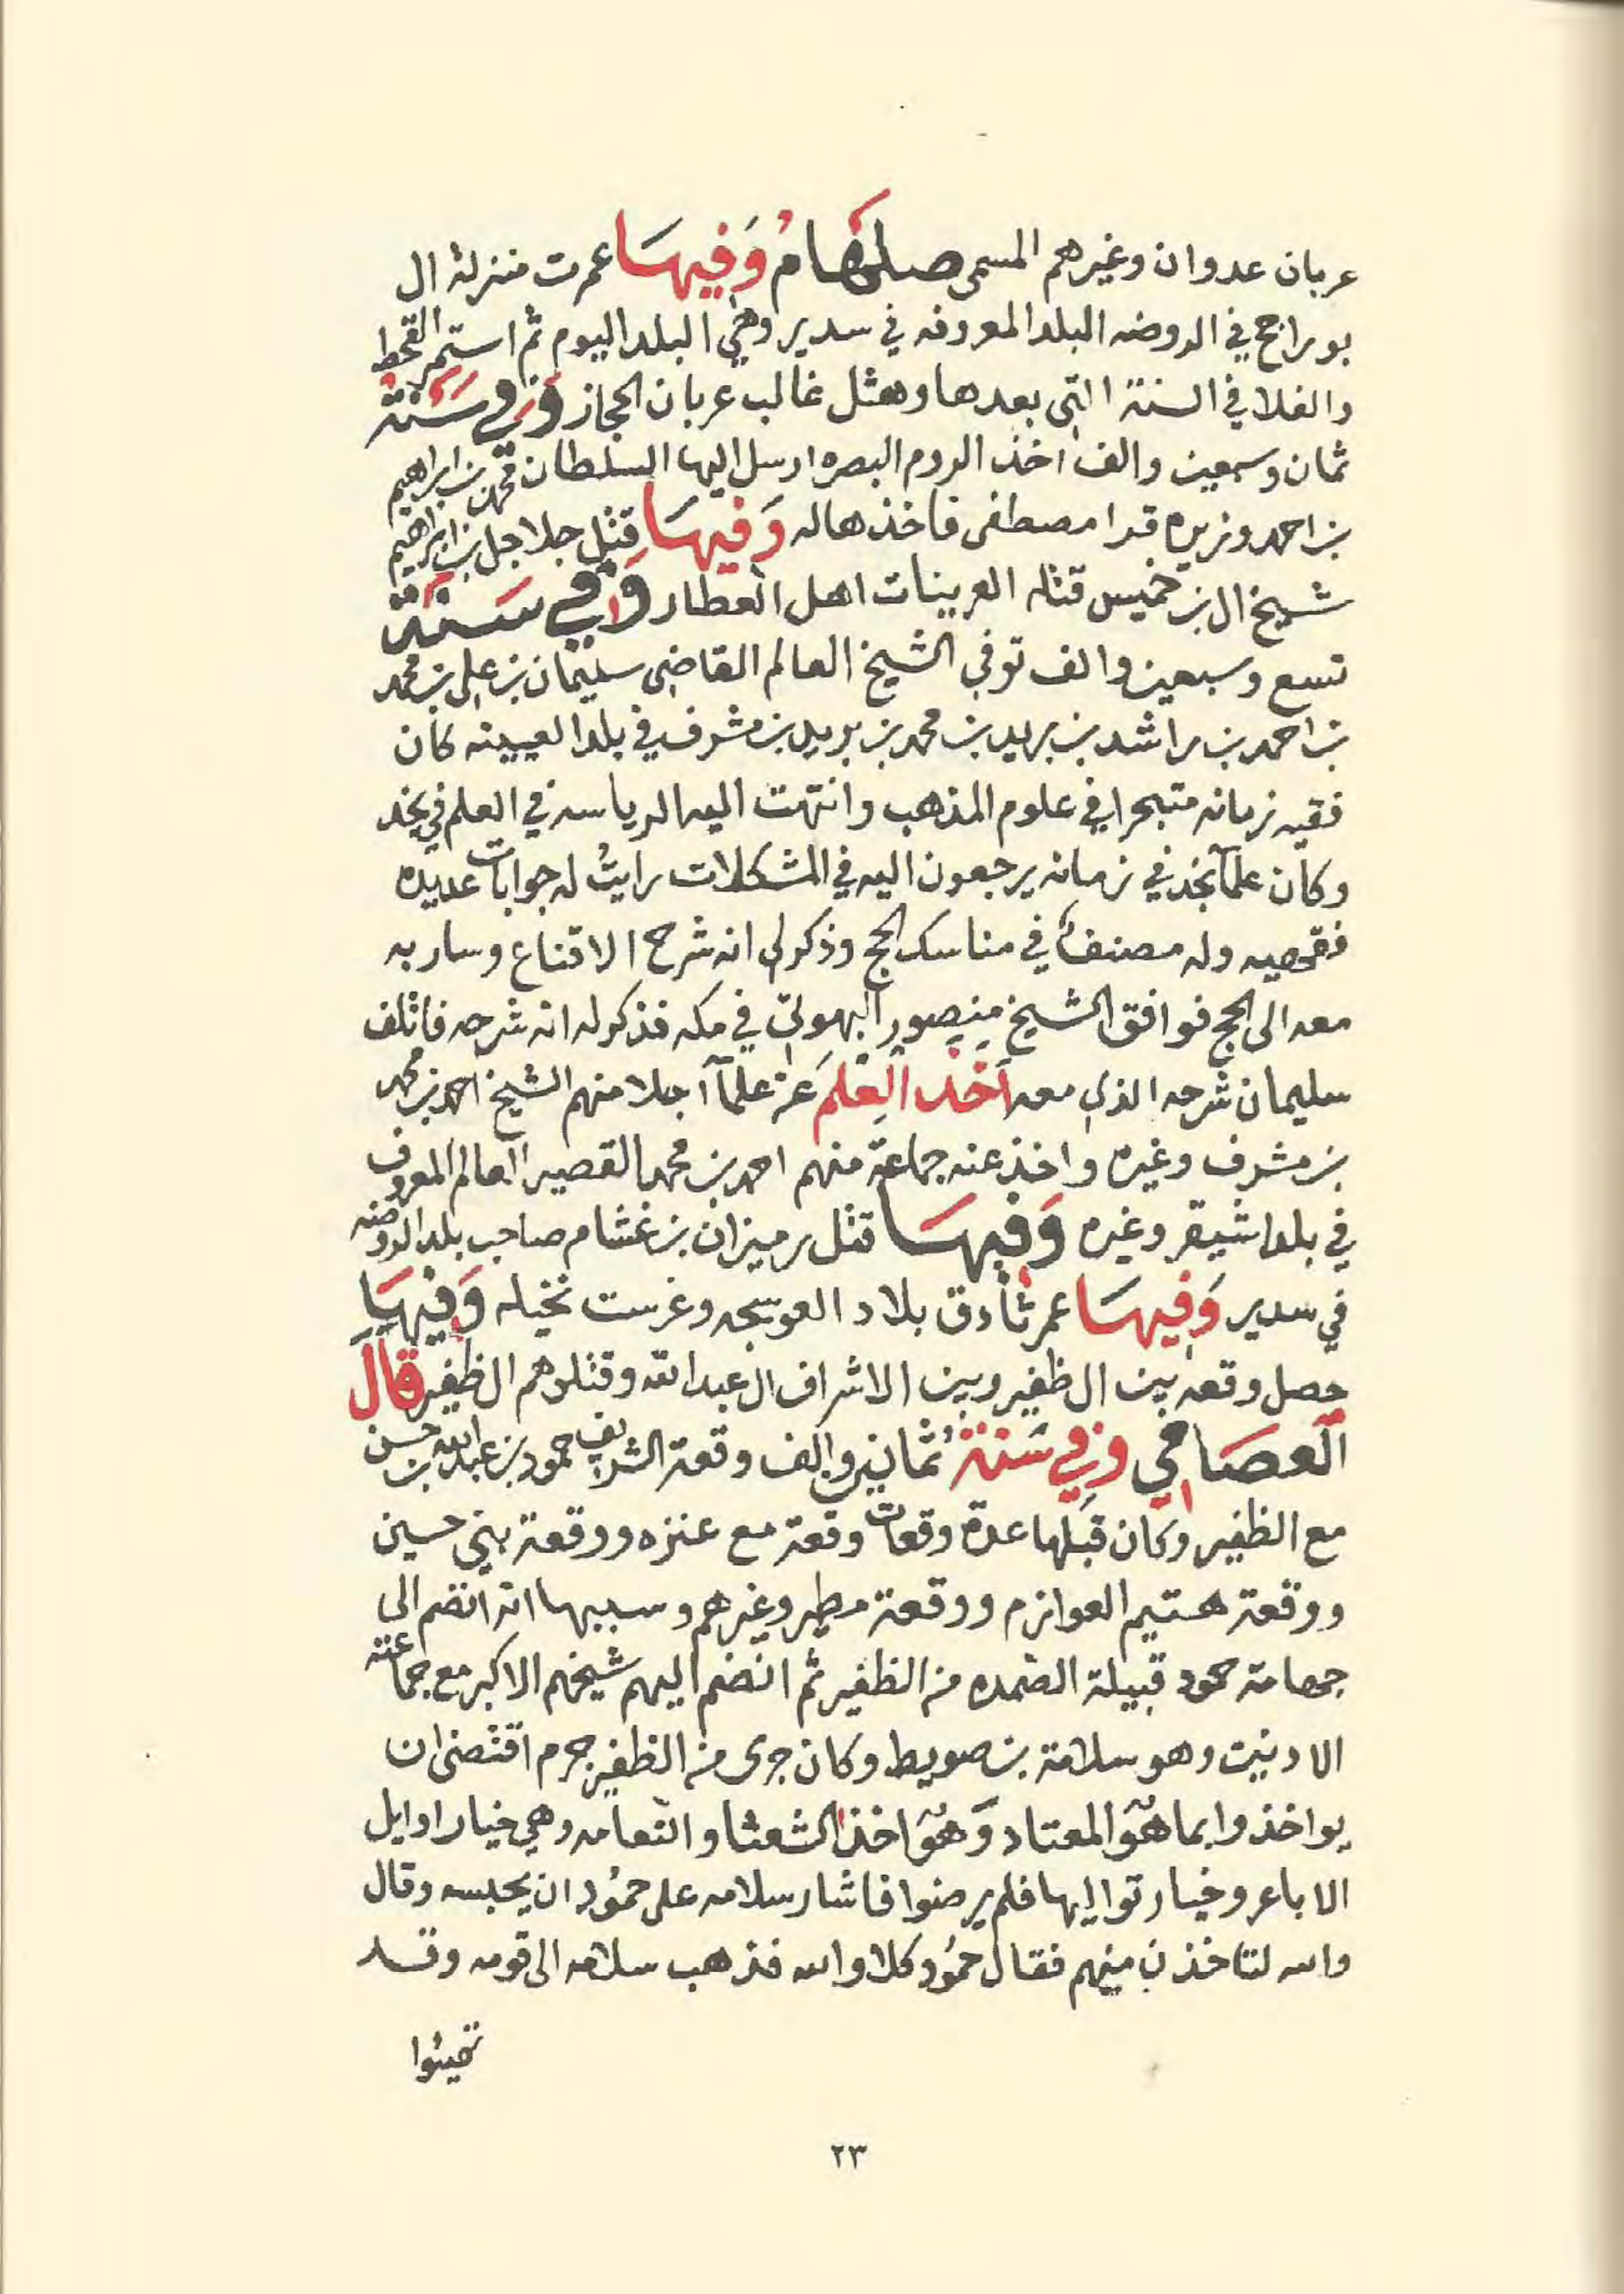 عربان عدوان وغيرهم المسمى صلهام وفيها عمرت منزلة ال
بو راجح في الروضه البلد المعروفه في سدير وهي البلد اليوم ثم استمر القحط
والغلا في السنة التي بعدها وهثل غالب عربان الحجاز وفي سنة
ثمان وسبعين والف اخذ الروم البصره ارسل اليها السلطان محمد بن ابراهيم
بن احمد وزيره قرا مصطفى فاخذها له وفيها قتل جلاجل بن ابراهيم
شيخ ال بن خميس قتله العرينات اهل العطار وفي سنة
تسع وسبعين والف توفي الشيخ العالم القاضي سليمان بن علي بن محمد
بن احمد بن راشد بن بريد بن محمد بن بريد بن مشرف في بلد العيينه كان
فقيه زمانه متبحرا في علوم المذهب وانتهت اليه الرياسه في العلم في نجد
وكان علمآ نجد في زمانه يرجعون اليه في المشكلات رايتُ له جوابات عديده
فقهيه وله مصنف في مناسك الحج وذكر لي انه شرح الاقناع وسار به
معه الى الحج فوافق الشيخ منصور البهوتي في مكه فذكر له انه شرحه فاتلف
سليمان شرحه الذي معه أخذ العِلمَ عن علمآ اجلا منهم الشيخ احمد بن محمد
بن مشرف وغيره واخذ عنه جماعة منهم احمد بن محمد القصير العالم المعروف
في بلد اشيقر وغيره وفيها قتل رميزان بن غشام صاحب بلد الروضه
في سدير وَفيهَا عمر ثادق بلاد العوسجه وغرست نخيله وَفيهَا
حصل وقعه بين ال ظفير وبين الاشراف ال عبدالله وقتلوهم ال ظفير قالَ
العصَامي وفي سَنة ثمانين والف وقعة الشريف حمود بن عبدالله بن حسن
مع الظفير وكان قبلها عدة وقعات وقعة مع عنزه ووقعة بني حسين
ووقعة هتيم العوازم ووقعة مطير وغيرهم وسببها انه انضم الى
جهامة حمود قبيلة الصمده من الظفير ثم انضم اليهم شيخهم الاكبر مع جماعته
الادنين وهو سلامة بن صويط وكان جرى من الظفير جرم اقتضى ان
يواخذوا بما هوَ المعتاد وَهوَ اخذ الشعثا والنعامه وهي خيار اوايل
الاباعر وخيار تواليها فلم يرضوا فاشار سلامه على حمُود ان يحبسه وقال
والله لتاخذن منهم فقال حمُود كلا والله فذهب سلامه الى قومه وقد
تهيئوا
٢٣